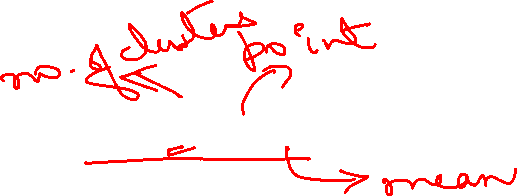 no. of clusters point
mean